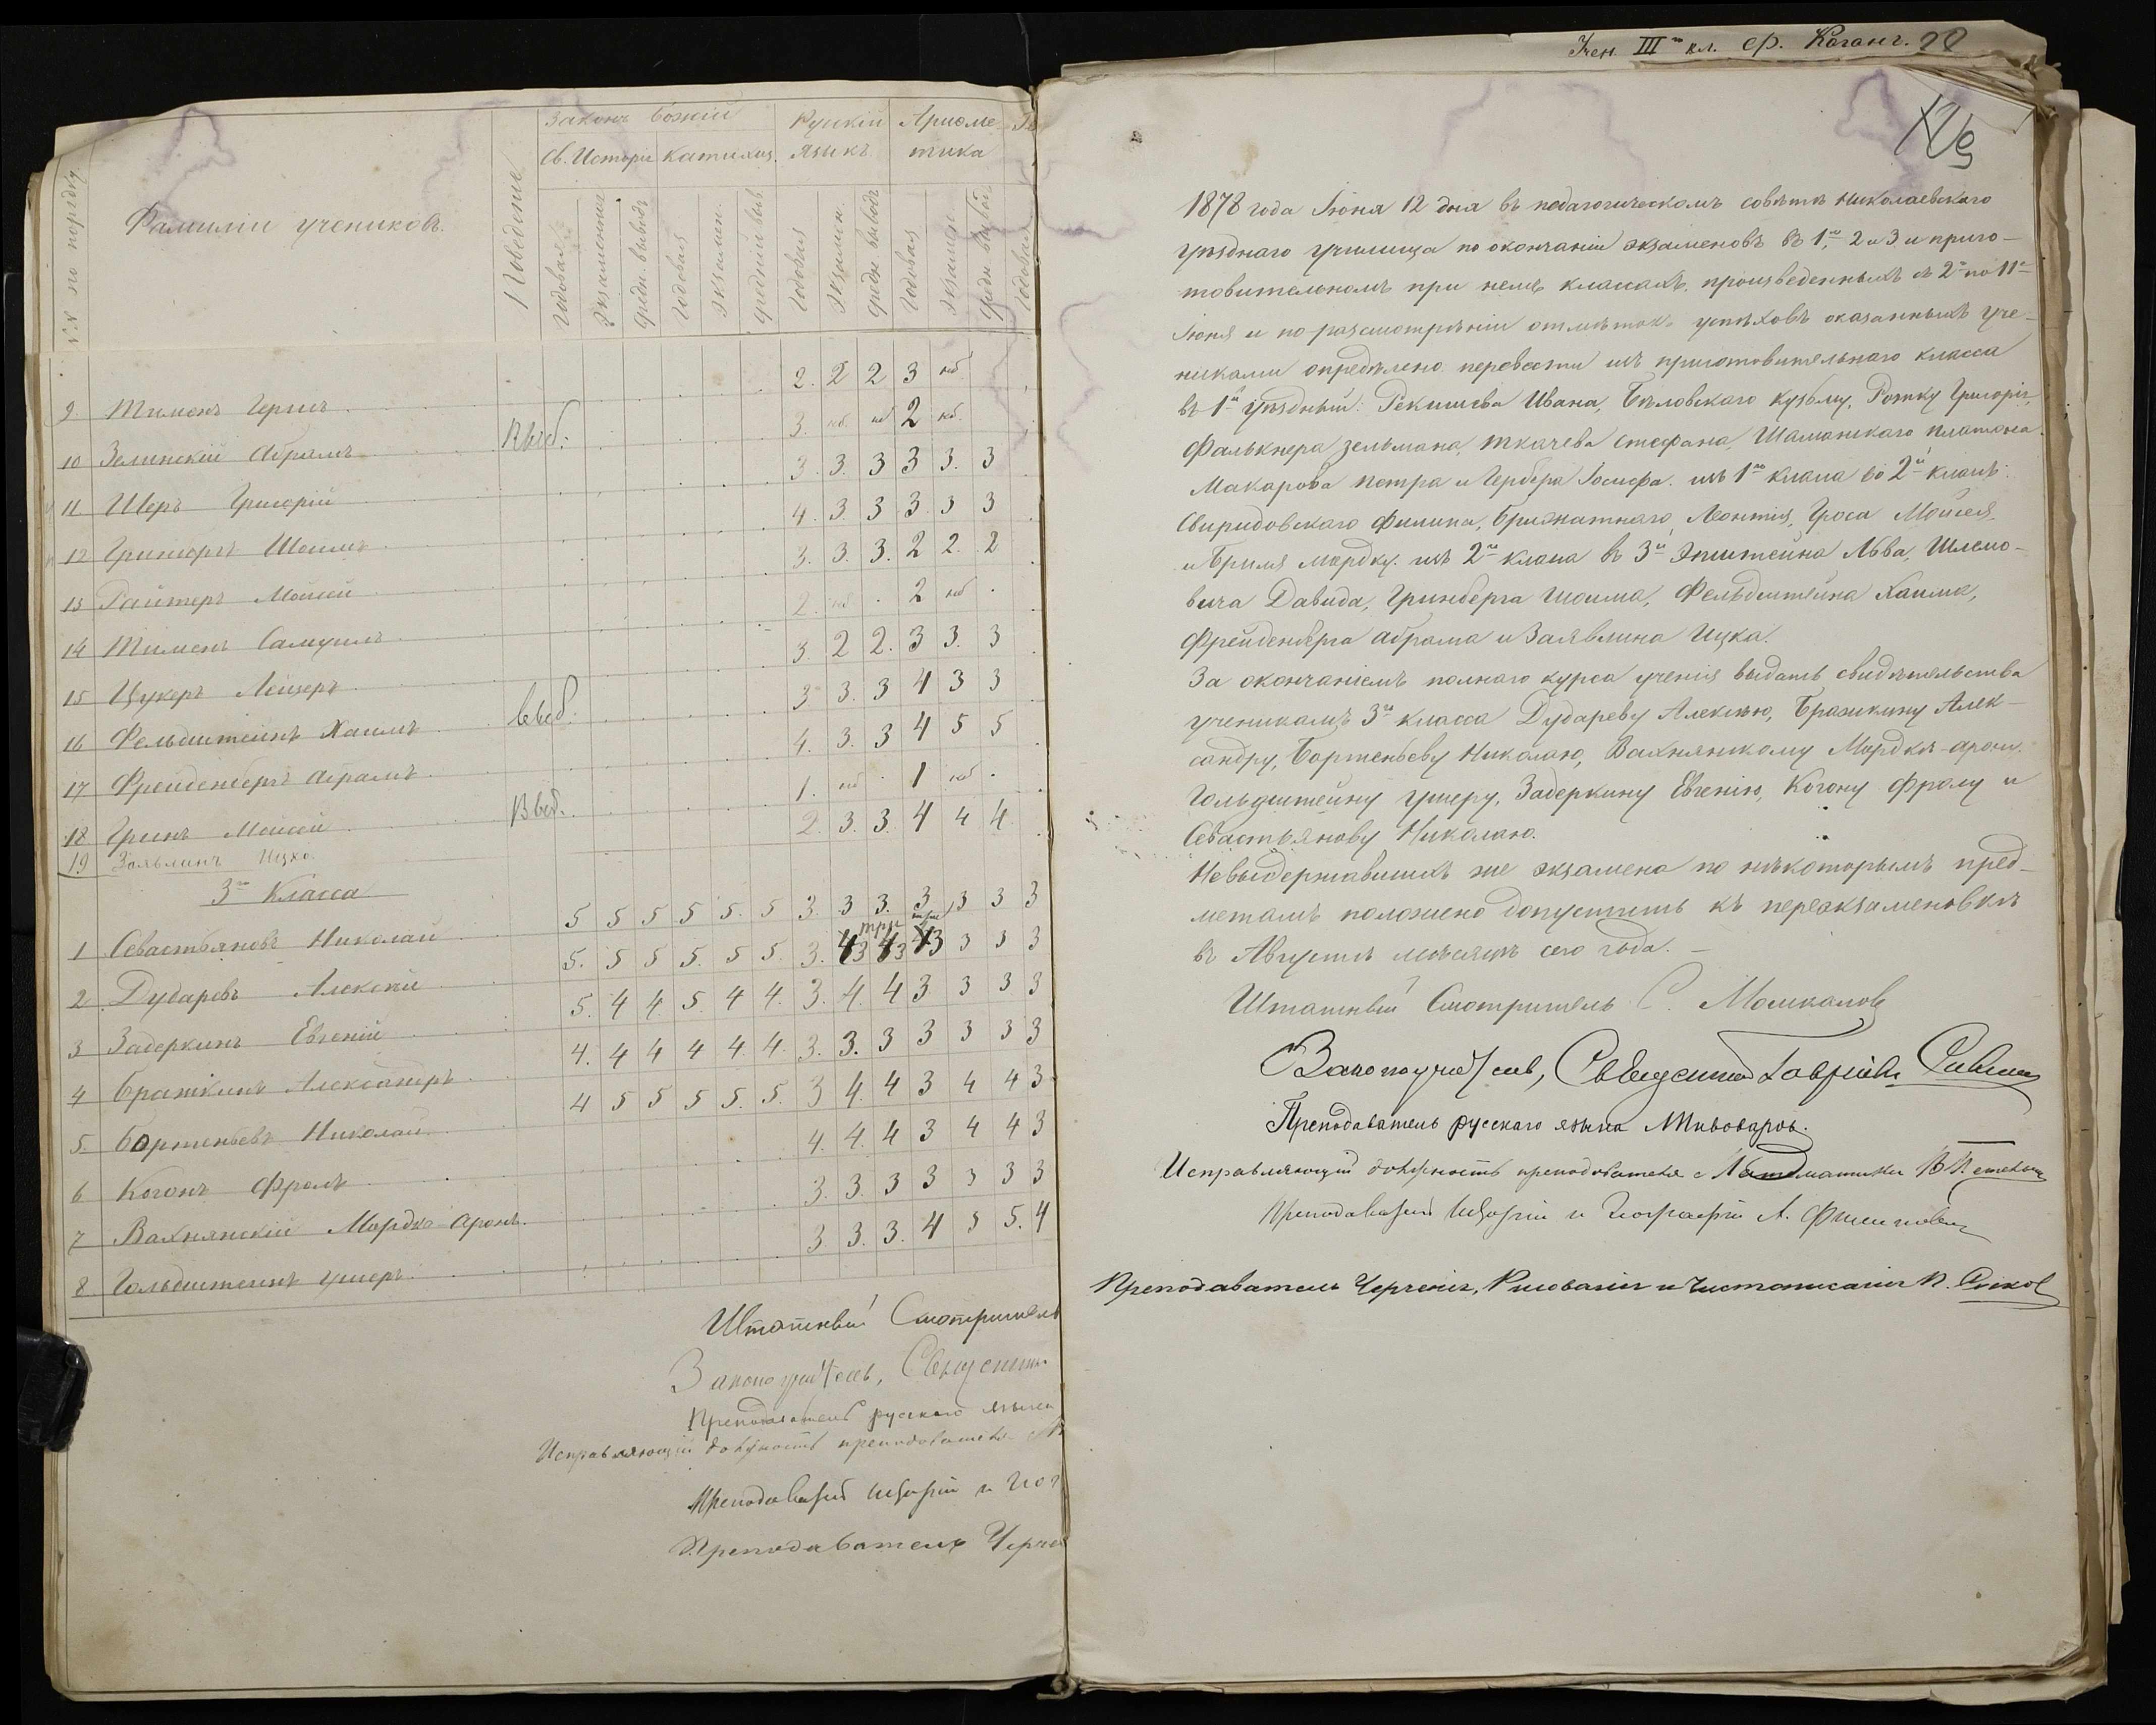 Учен. III кл. Ф. Коганъ. 20
№ по порядку
Фамиліи учениковъ.
Поведеніе
Законъ Божій
Св. Исторія Катихиз.
Русскій языкъ.
Ариѳметика
Годовая Экзаменная Средн. выводъ Годовая Экзамен. Средній выв. Годовая Экзамен. Средн. выводъ Годовая Экзамен. Средн. вывод Годовая
9. Тименъ Гершъ 2. 2 2 3 нб
10 Зелинскій Абрамъ Выб. 3. нб. нб 2 нб.
11 Шеръ Григорій 3. 3. 3 3 3. 3
12 Гринбергъ Шоимъ 4. 3. 3 3. 3 3
13 Райтеръ Мойсей 3. 3. 3. 2 2. 2
14 Тименъ Самуилъ 2. нб . 2 нб .
15 Цукеръ Лейзеръ 3. 2 2. 3 3. 3
16 Фельдштейнъ Хаимъ выб. 3 3. 3 4 3 3
17 Фрейденбергъ Абрамъ 4. 3. 3 4 5 5
18 Гринъ Мойсей Выб. 1. нб . 1 нб .
19 Заявлинъ Ицко. 2. 3. 3. 4 4 4.
3го Класса
1 Севастьяновъ Николай 5 5 5 5 5. 5 3. 3 3. 3 3 3 3
2 Дударевъ Алексѣй 5. 5 5 5. 5 5. 3. 3 3 3 3 3 3
3 Задеркинъ Евгеній 5. 4 4. 5 4 4. 3. 4. 4 3 3 3. 3
4 Браткинъ Александръ 4. 4 4 4 4. 4. 3. 3. 3 3 3 3 3
5. Бортеньевъ Николай 4 5 5 5 5. 5. 3 4. 4 3 4 4 3
6 Когонъ Фролъ 4. 4. 4 3 4 4 3
7 Вахнянскій Мордко-Аронъ. 3. 3. 3 3 3 3 3
8. Гольдштейнъ Ушеръ 3. 3. 3. 4 5 5. 4
Штатный Смотритель
Законоучитель, Священни
Преподаватель русскаго языка
Исправляющій должность преподавателя М
Преподаватель Исторіи и Геог
Преподаватель Черче
1878 года Іюня 12 дня въ педагогическомъ совѣтѣ Николаевскаго
уѣзднаго училища по окончаніи экзаменовъ въ 1мъ, 2 и 3 и приго-
товительномъ при немъ классахъ, произведенныхъ съ 2го по 11е
Іюня и по разсмотрѣніи отмѣтокъ успѣховъ оказанныхъ уче-
никами опредѣлено перевести изъ приготовительнаго класса
въ 1й уѣздный: Рекишева Ивана, Бѣловскаго Кузьму, Ротку Григорія,
Фалькнера Зельмана, Ткачева Стефана, Шаманскаго Платона
Макарова Петра и Гербера Іосифа. изъ 1го класа во 2й класъ:
Свиридовскаго Филипа, Бризнатнаго Леонтія, Гроса Мойсея
и Бриля Мордку. изъ 2го класа въ 3й Эпштейна Льва, Шлемо-
вича Давида, Гринберга Шоима, Фельдштейна Хаима,
Фрейденберга Абрама и Заявлина Ицка.
За окончаніемъ полнаго курса ученія выдать свидѣтельства
ученикамъ 3го класса Дудареву Алексѣю, Браткину Алек-
сандру, Бортеньеву Николаю, Вахнянскому Мордкѣ-Арон.
Гольдштейну Ушеру, Задеркину Евгенію, Когону Фролу и
Севастьянову Николаю.
Невыдержавшихъ же экзамена по нѣкоторымъ пред-
метамъ положено допустить къ переэкзаменовкѣ
въ Августѣ мѣсяцѣ сего года. —
Штатный Смотритель С. Мошкалов
Законоучитель, Священникъ Гавріилъ
Преподаватель русскаго языка Пивоваровъ.
Исправляющій должность преподавателя Математики
Преподаватель Исторіи и Географіи А. Филиповъ
Преподаватель Черченія, Рисованія и Чистописанія П.